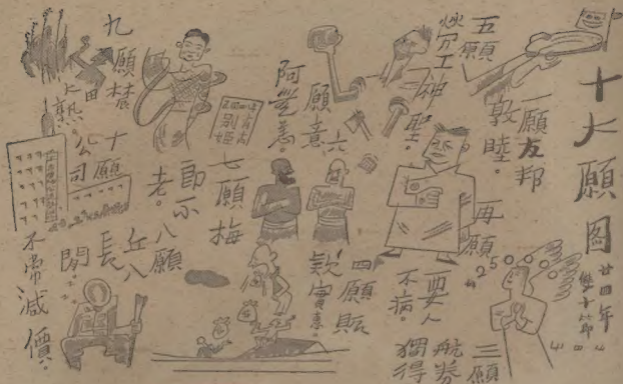 十大願图
廿四年
雙十節
一願友邦
敦睦。
再願
要人
不病。
三願
航券
獨得
25
四願賑
款實惠。
五願
勞工神聖。
六
願意
阿
七願梅
郎不
老。
八願
丘八
長
閒。
九願農
田
大熟。
十願
公司
不常減價。